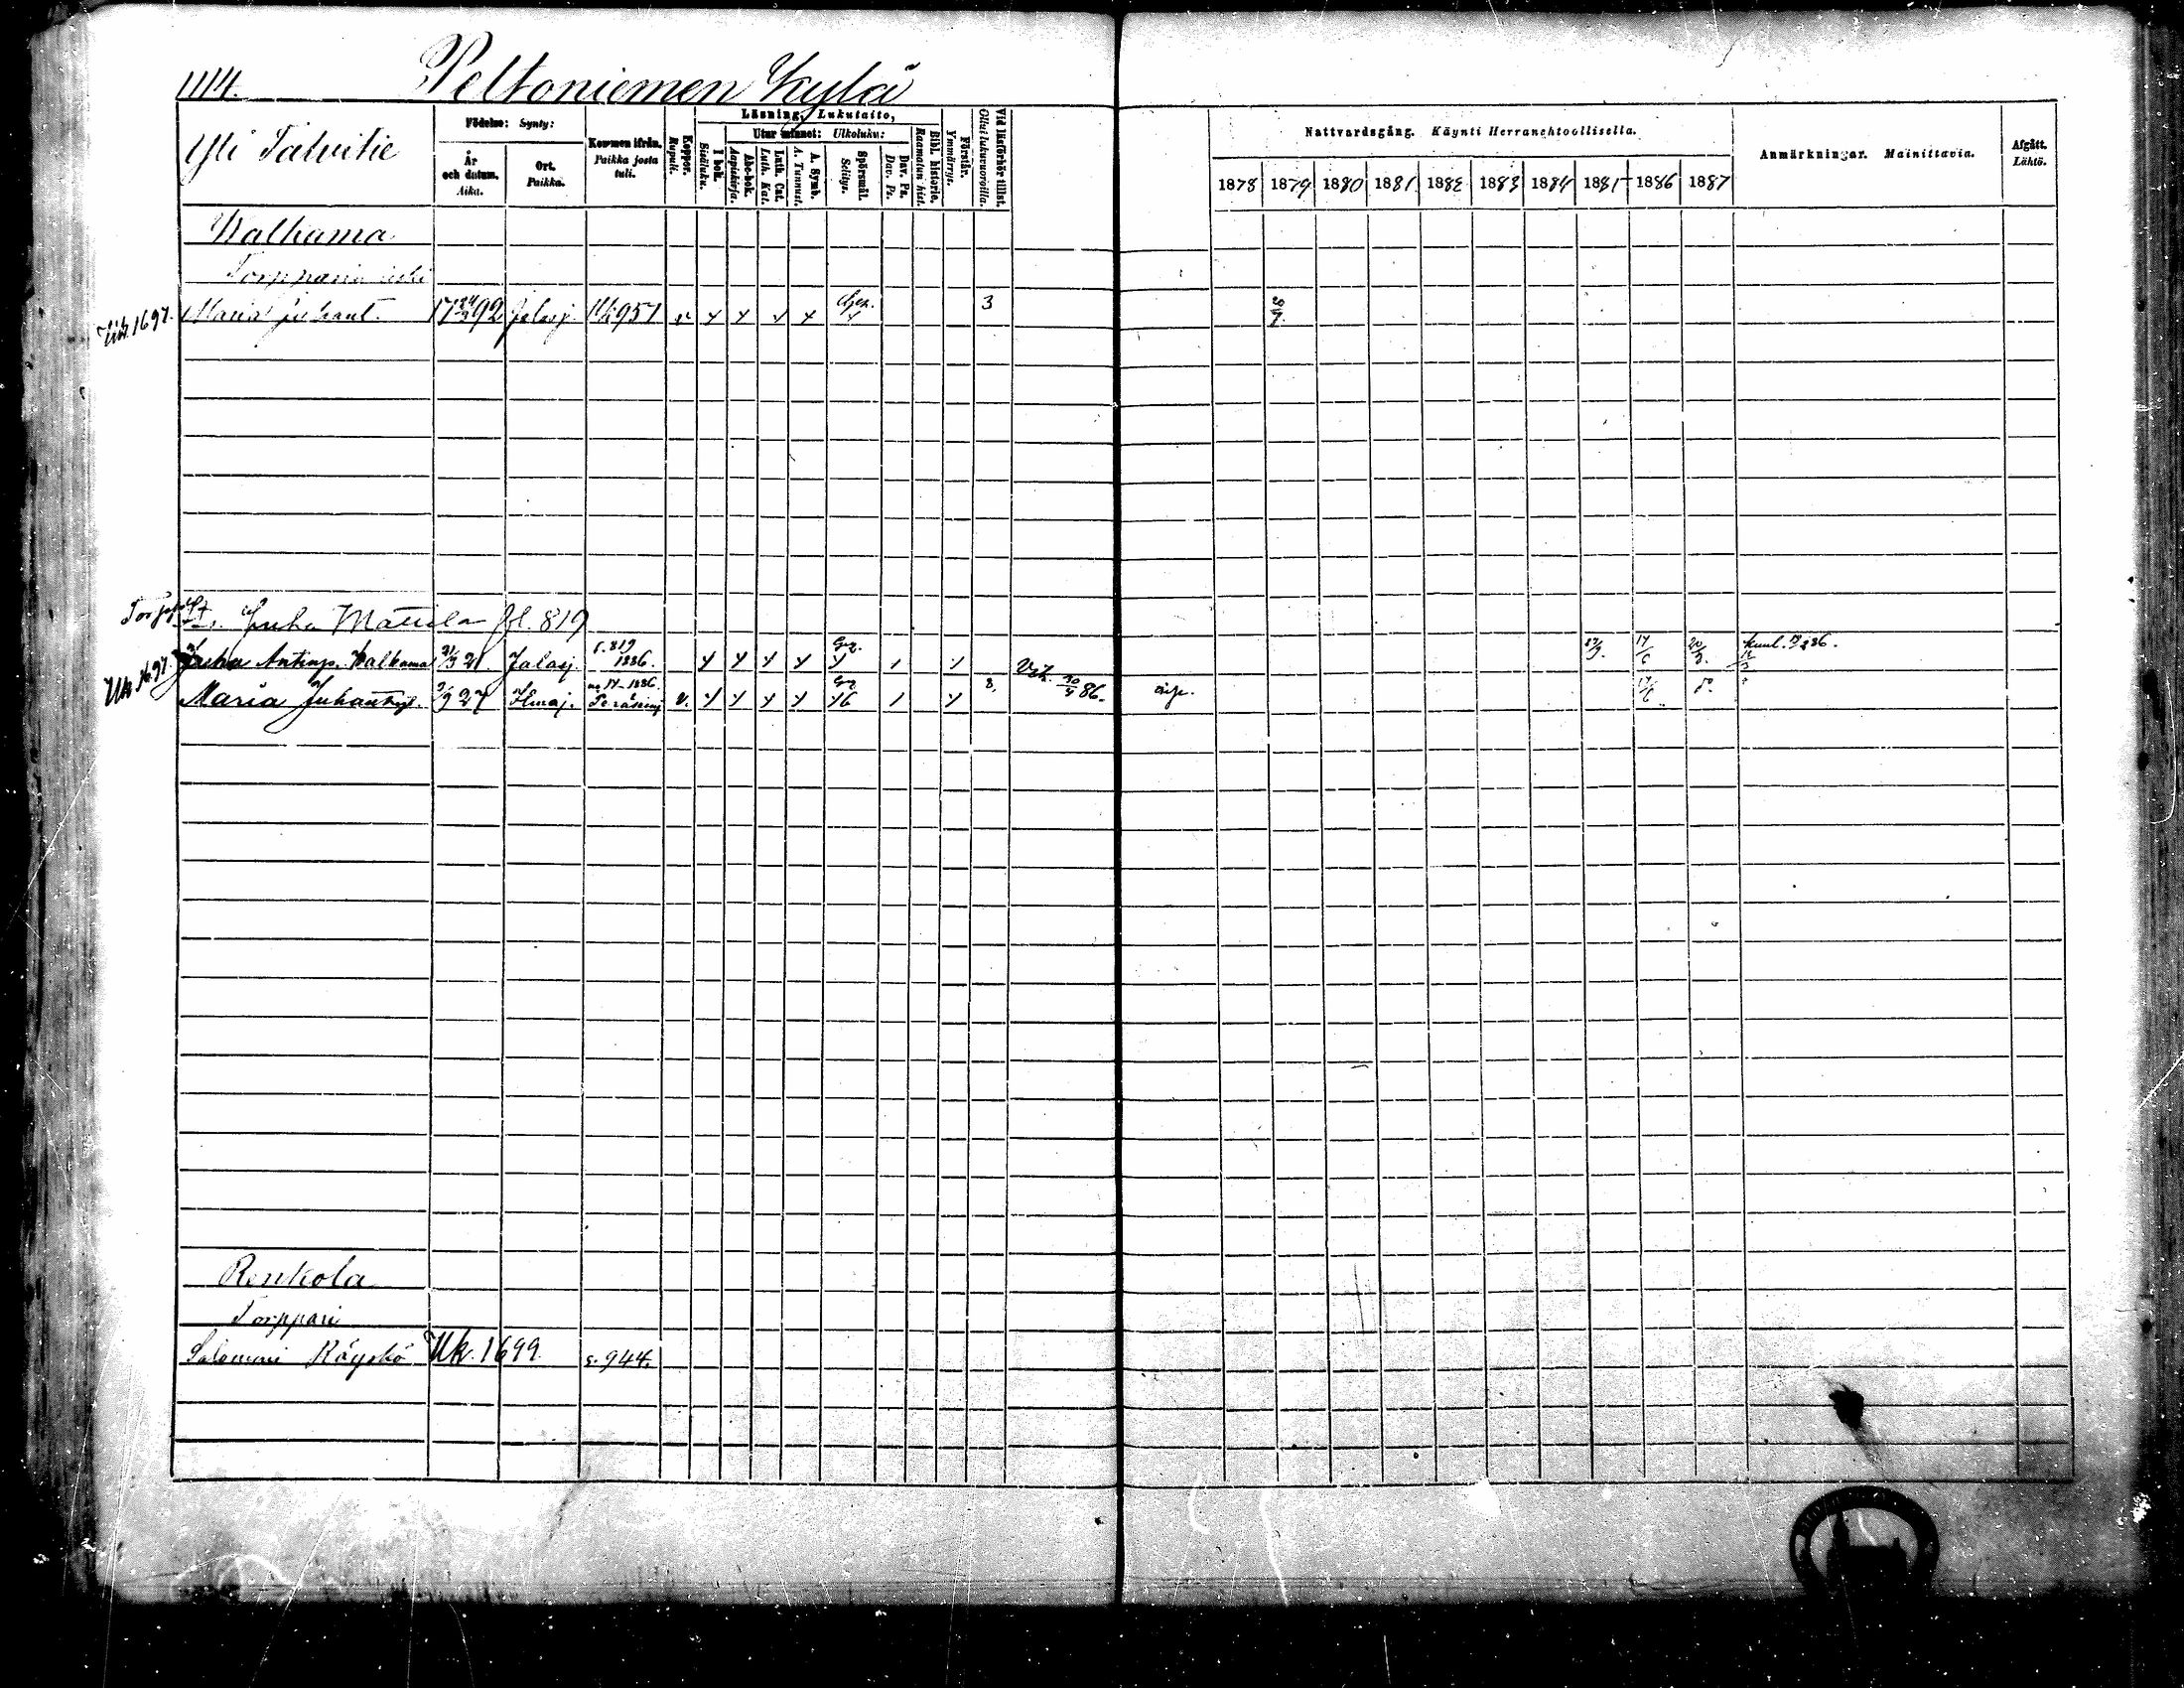 1114. Peltoniemen Kylä
Yli Talvitie
Födelse: Synty:
År och datum. Aika.
Ort. Paikka.
Kommen ifrån. Paikka josta tuli.
Koppor. Rupuli.
Läsning, Lukutaito,
I bok. Sisäluku.
Utur minnet: Ulkoluku:
Abc-bok. Aapiskirja.
Luth. Cat. Luth. Kat.
A. Symb. A. Tunnust.
Spörsmål. Selitys.
Dav. Ps. Dav. Ps.
Bibl. historie. Raamatun hist.
Förstår. Ymmärrys.
Vid läsförhör tillst. Ollut lukuvuoroilla.
Nattvardsgång. Käynti Herranehtoollisella.
1878 1879 1880 1881 1882 1883 1884 1885 1886 1887
Anmärkningar. Mainittavia.
Afgått. Lähtö.
Walkama
Torpparin leski
Uk. 1697. Maria Juhant. 1792 Jalasj. 951 3
Torpp. Juha Mattila fol. 819
Juha Antinp. Walkama 21/3 21 Jalasj. s. 819 1886. kuul. 86.
Uk. 1697. Maria Juhantyt. 27 Ilmaj. 1886 v. 8. 30/4 86.
Renkola
Torppari
Salomoni Röyskö Uk. 1699. s. 944.